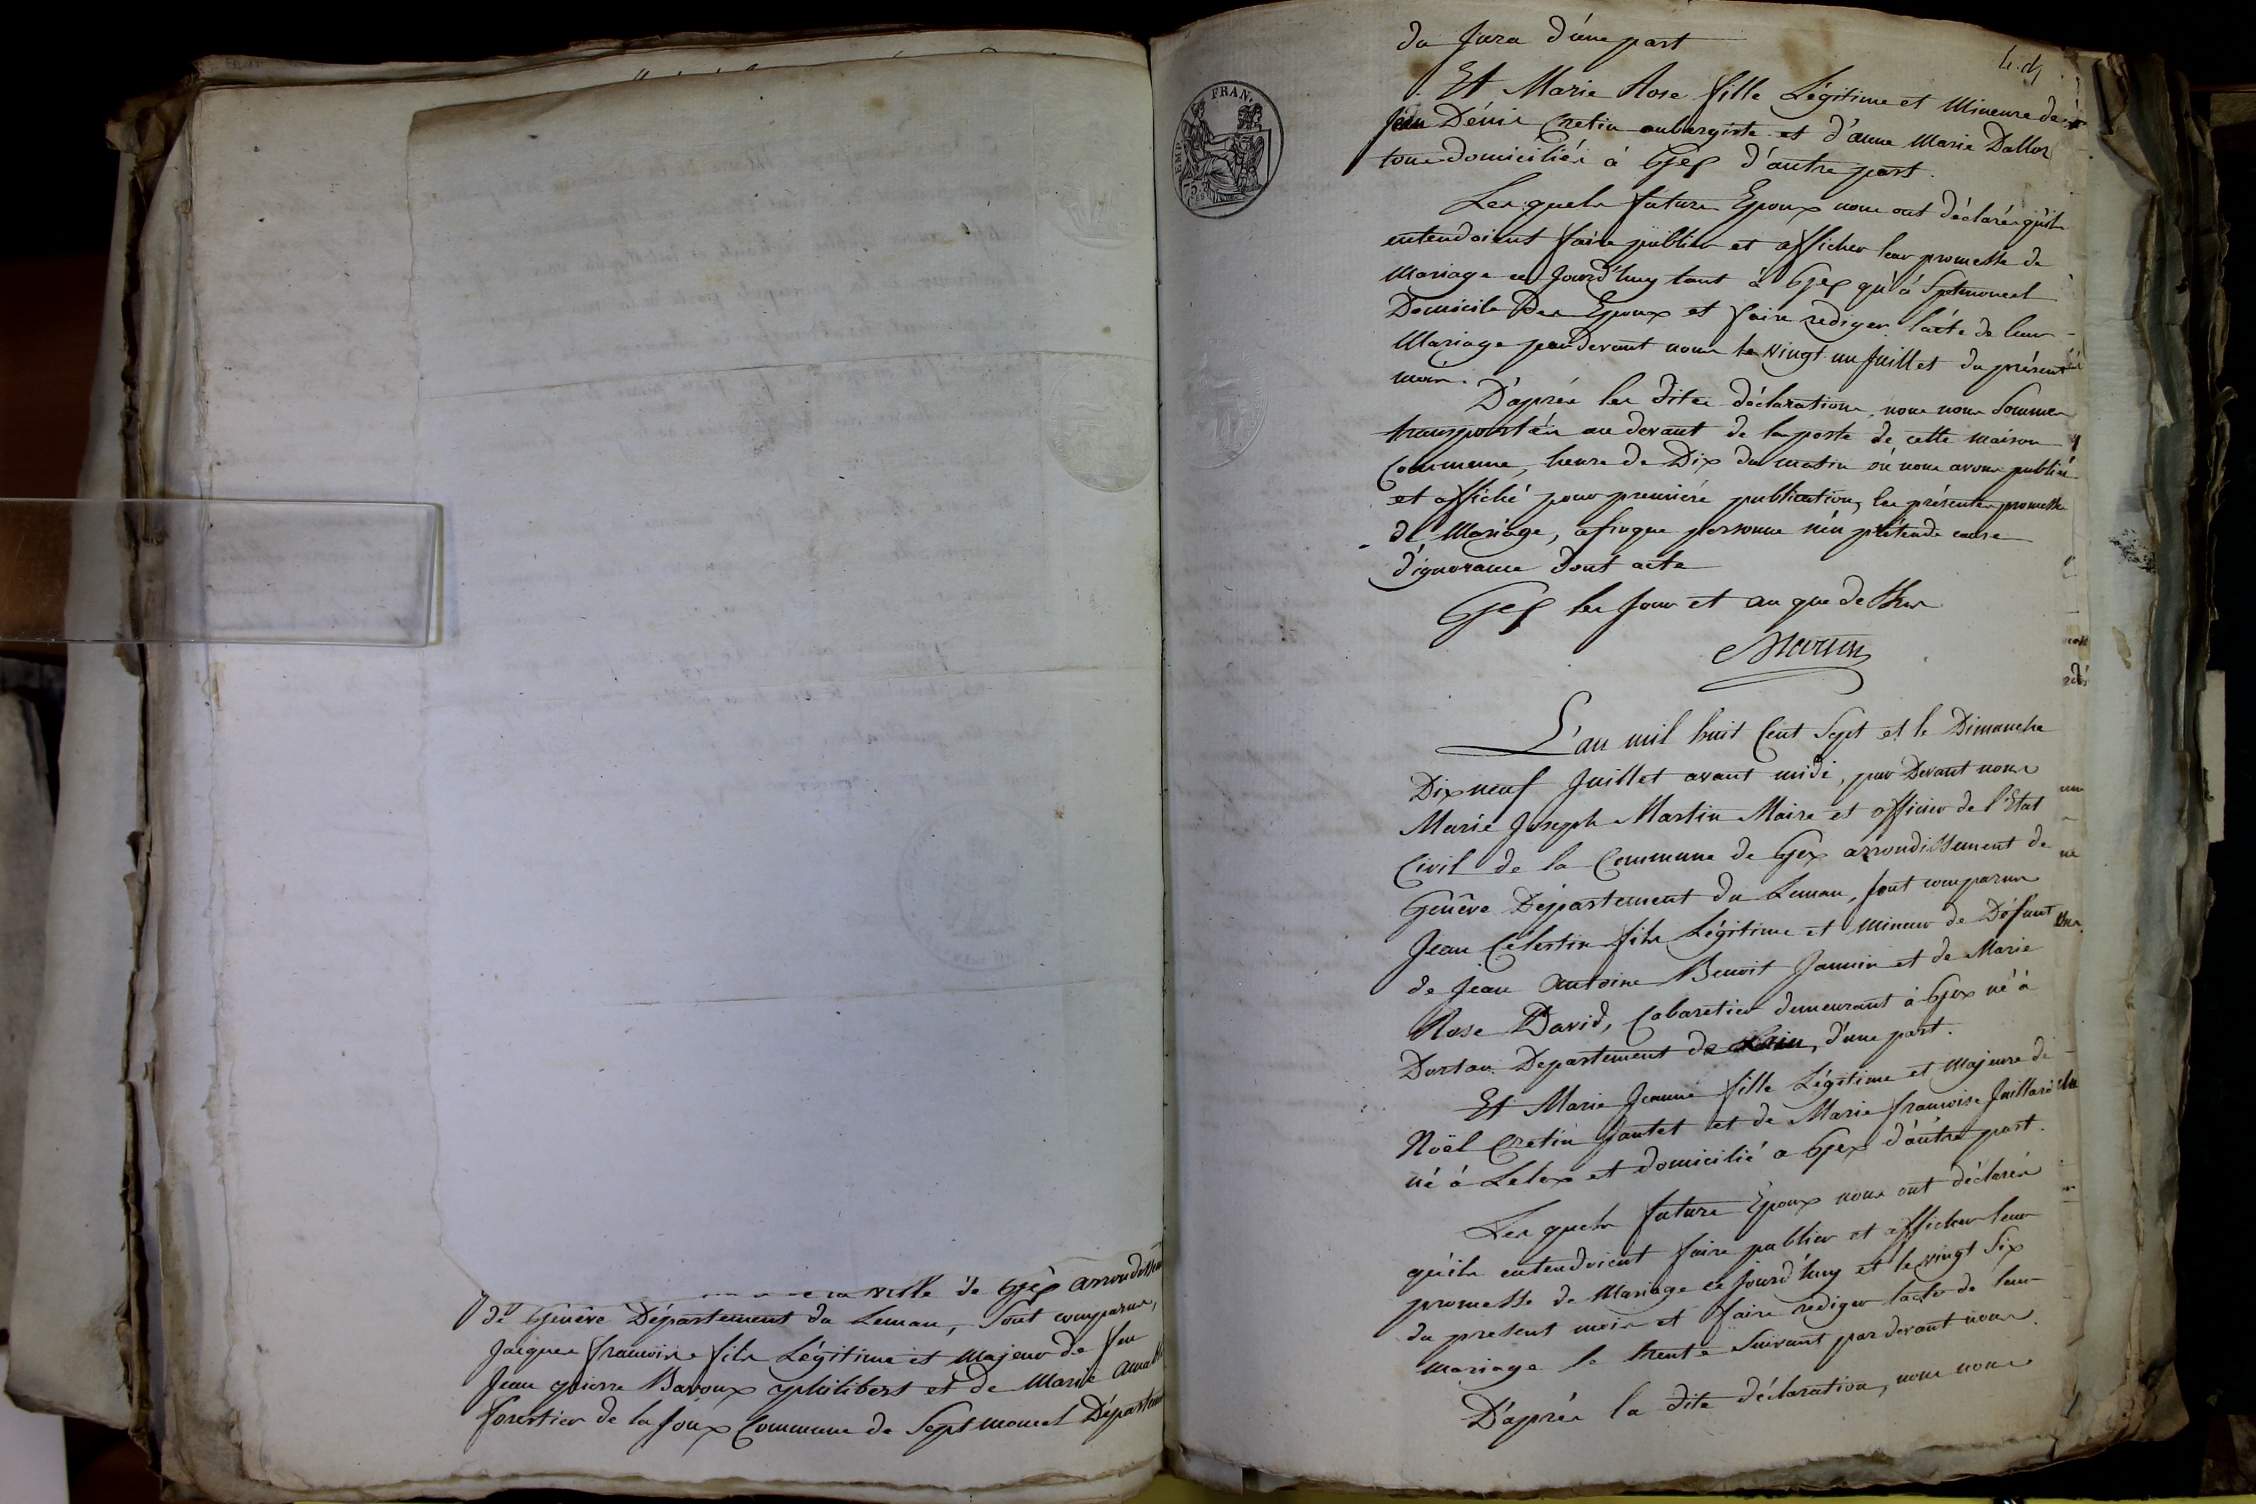 la ville de Gex arrondissem
de Genève Département du Leman, Sont comparus,
Jacques francoise fils Légitime et Majeur de feu
Jean pierre Bavoux philibert et de Marie
forestier de la foux Commune de Septmoncel Départem
du Jura d'une part
Et Marie Rose fille Légitime et Mineure de
Jean Dénis Cretin aubergiste et d'anne Marie Dalloz
tous domiciliés à Gex d'autre part.
Les quels futurs Epoux nous ont déclarés qu'ils
entendoient faire publier et afficher leur promesse de
Mariage ce Jourd'huy tant à Gex qu'à Septmoncel
Domicile Des Epoux et faire rediger l'acte de leur
Mariage pardevant nous le vingt un Juillet du présent
mois.
D'après les dites déclarations, nous nous Sommes
transportés au devant de la porte de cette maison
Commune, heure de Dix du matin où nous avons publié
et affiché pour première publication, les présentes promesses
de Mariage, afinque personne n'en prétende cause
d'ignorance dont acte
Gex les Jour et an que dessus
Martin
L'an mil huit Cent Sept et le Dimanche
Dix neuf Juillet avant midi, par Devant nous
Marie Joseph Martin Maire et officier de l'Etat
Civil de la Commune de Gex arrondissement de
Genêve Département du Leman, sont comparus
Jean Célestin fils Légitime et Mineur de Défunt
de Jean Antoine Benoit Janin et de Marie
Rose David, Cabaretier demeurant à Gex né à
Dortan Departement de l'ain, d'une part.
Et Marie Jeanne fille Légitime et Majeure de
Noël Cretin Jantet et de Marie francoise Juillard
né à Lelex et domicilié a Gex d'autre part.
Les quels futurs Epoux nous ont déclarés
qu'ils entendoient faire publier et afficher leur
promesse de Mariage ce Jourd'huy et le vingt Six
du present mois et faire rediger l'acte de leur
mariage le trente Suivant par devant nous.
D'après la dite déclaration, nous nous